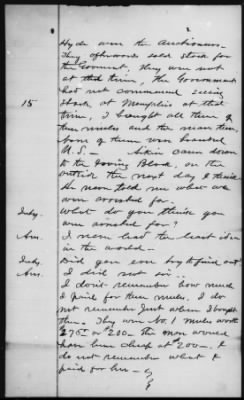 Hyde were the Auctioneers.
They afterwards sold Stock for
the Government, they were not
at that time, the Government
had not commenced selling
15 Stock at Memphis at that
time, I bought all three of
these mules and the man then,
None of them were branded
U.S. — came down
to the Block, on the
outside the next day I
He never told me what we
were arrested for.
Judy. What do you think you
were arrested for?
Ans. I never had the least idea
in the world —
Judy. Did you ever try to find out?
Ans. I did not sir.
I don't remember how much
I paid for them mules. I do
not remember just when I bought
them. They were No. 1 mules worth
$175 or $200 — The man would
have been cheap at $200 — I
do not remember what I
paid for him —